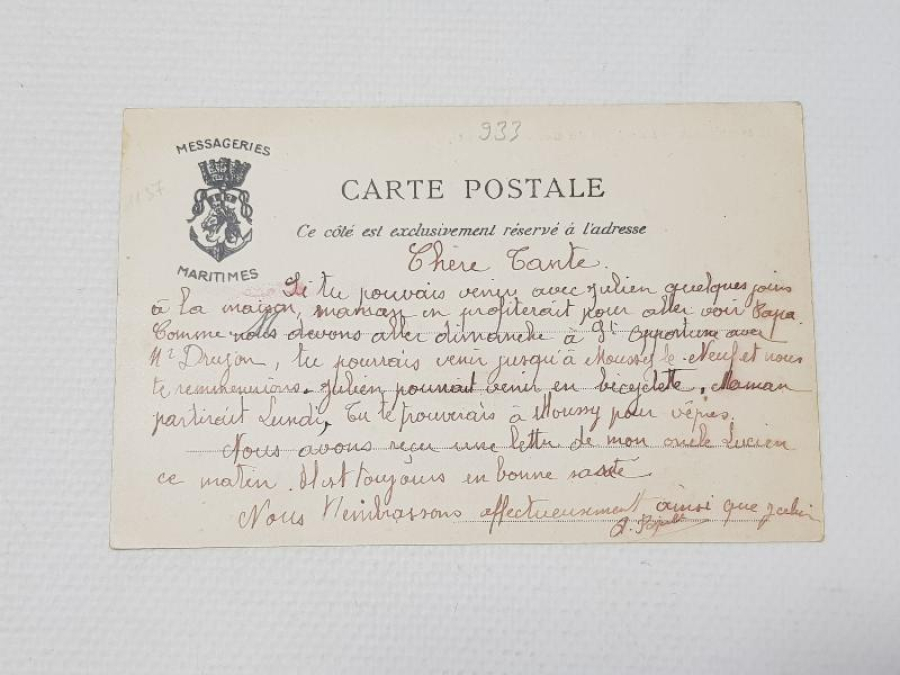 933
1137
MESSAGERIES
MARITIMES
CARTE POSTALE
Ce côté est exclusivement réservé à l'adresse
Chère Tante.
Si tu pouvais venir avec Julien quelques jours
à la maison, maman en profiterait pour aller voir Papa.
Comme nous devons aller dimanche à Ste Opportune avec
Mr Druzon, tu pourrais venir jusqu'à Moussy le Neuf et nous
te remmenerions. Julien pourrait venir en bicyclette, Maman
partirait Lundi, Tu te trouverais à Moussy pour vêpres.
Nous avons reçu une lettre de mon oncle Lucien
ce matin. Il est toujours en bonne santé
Nous t'embrassons affectueusement ainsi que Julien